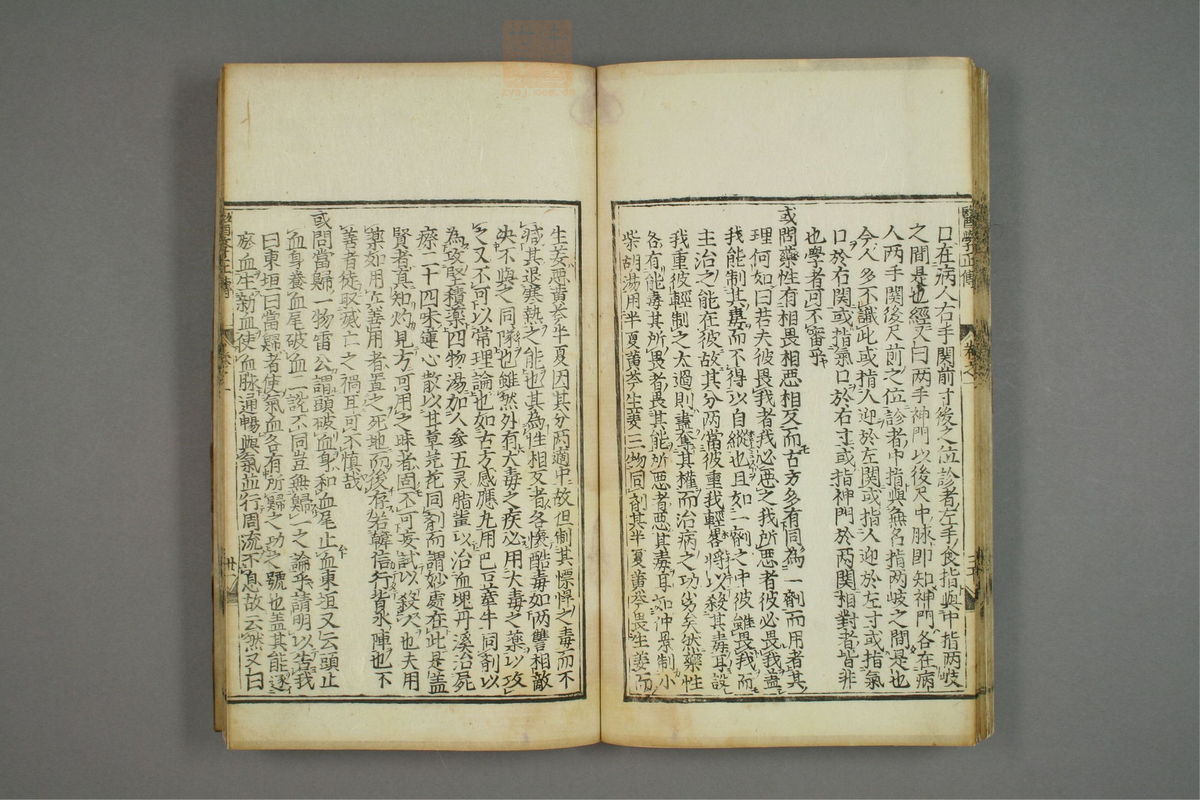 醫學正傳
口在病人右手関前寸後之位診者左手食指與中指两岐
之間是也經又曰两手神門以後尺中脉即知神門各在病
人两手関後尺前之位診者中指與無名指两岐之間是也
今人多不識此或指人迎於左関或指人迎於左寸或指氣
口於右関或指氣口於右寸或指神門於两関相對者皆非
也學者可不審乎
或問藥性有相畏相惡相反而古方多有同為一劑而用者其
理何如曰若夫彼畏我者我必惡之我所惡者彼必畏我盖
我能制其毒而不得以自縱也且如一劑之中彼雖畏我而
主治之能在彼故其分两當彼重我輕畧將以殺其毒耳設
我重彼輕制之太過則盡奪其權而治病之功劣矣然藥性
各有能毒其所畏者畏其能所惡者惡其毒耳如仲景制小
柴胡湯用半夏黄芩生姜三物同劑其半夏黄芩畏生姜而
生姜惡黄芩半夏因其分两適中故但制其慓悍之毒而不
減其退寒熱之能也其為性相反者各懷酷毒如两讐相敵
决不與之同隊也雖然外有大毒之疾必用大毒之藥以攻
之又不可以常理論也如古方感應丸用巴豆牽牛同劑以
為攻堅積藥四物湯加人參五灵脂軰以治血塊丹溪治尸
瘵二十四味蓮心散以甘草芫花同劑而謂妙處在此是盖
賢者真知灼見方可用之昧者固不可妄試以殺人也夫用
藥如用兵善用者置之死地而後存若韓信行背水陣也不
善者徒取滅亡之禍耳可不慎哉
或問當歸一物雷公謂頭破血身和血尾止血東垣又云頭止
血身養血尾破血二説不同豈無歸一之論乎請明以告我
曰東垣曰當歸者使氣血各有所歸之功之號也盖其能逐
瘀血生新血使血脉通暢與氣並行周流不息故云然又曰